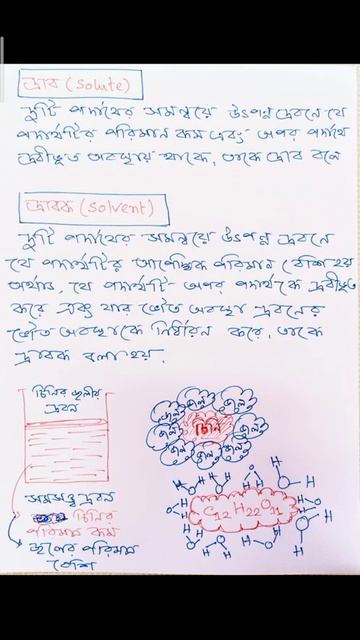 দ্রাব (Solute)
দুটি পদার্থের সমন্বয়ে উৎপন্ন দ্রবনে যে
পদার্থটির পরিমান কম এবং অপর পদার্থে
দ্রবীভূত অবস্থায় থাকে, তাকে দ্রাব বলে
দ্রাবক (Solvent)
দুটি পদার্থের সমন্বয়ে উৎপন্ন দ্রবনে
যে পদার্থটির আপেক্ষিক পরিমান বেশি হয়
অর্থাৎ, যে পদার্থটি অপর পদার্থকে দ্রবীভূত
করে এবং যার ভৌত অবস্থা দ্রবনের
ভৌত অবস্থাকে নির্ধারন করে, তাকে
দ্রাবক বলা হয়.
চিনির জলীয়
দ্রবন
অসমসত্ত্ব দ্রবন
চিনির
পরিমান কম
জলের পরিমান
বেশি
জল জল জল
জল চিনি জল
জল জল জল
C12H22O11
H O H